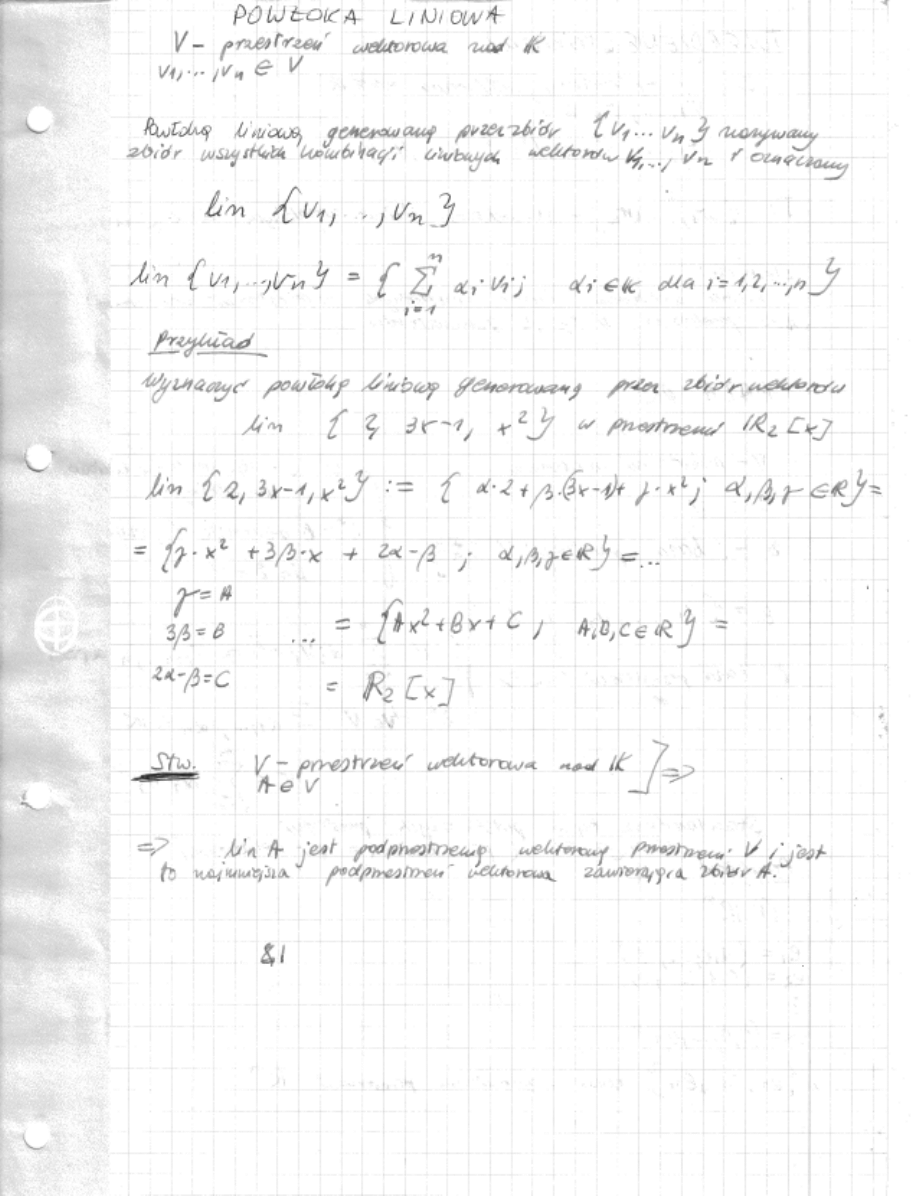 POWŁOKA LINIOWA
V - przestrzeń wektorowa nad K
v1,...,vn ∈ V
Powłoką liniową generowaną przez zbiór {v1...vn} nazywamy
zbiór wszystkich kombinacji liniowych wektorów v1,...,vn i oznaczamy
lin {v1,...,vn}
lin {v1,...,vn} = { n∑i=1 αi vi; αi ∈ K dla i=1,2,...,n}
Przykład
Wyznaczyć powłokę liniową generowaną przez zbiór wektorów
lin { 2, 3x-1, x²} w przestrzeni ℝ2[x]
lin {2, 3x-1, x²} := { α·2 + β·(3x-1) + γ·x²; α,β,γ ∈ ℝ} =
= {γ·x² + 3β·x + 2α-β ; α,β,γ ∈ ℝ} = ...
γ = A
3β = B ... = {Ax²+Bx+C ; A,B,C ∈ ℝ} =
2α-β = C = ℝ2[x]
Stw. V - przestrzeń wektorowa nad K ] ⇒
A ∈ V
⇒ lin A jest podprzestrzenią wektorową przestrzeni V i jest
to najmniejsza podprzestrzeń wektorowa zawierająca zbiór A.